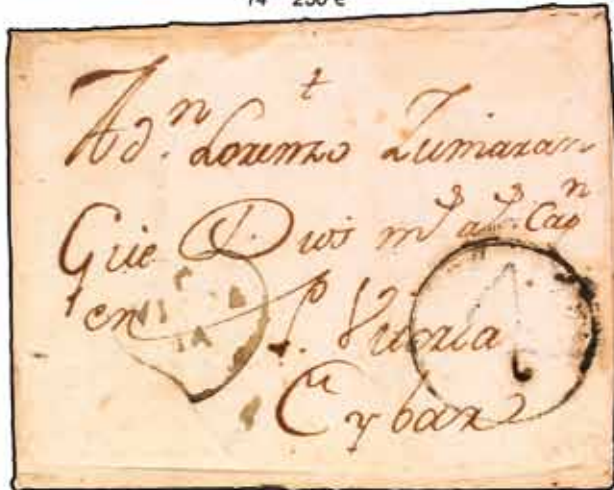 14 250 €
t
A dn. Lorenzo Zumaran
Gue Dios ms. as. Capn
en
P. Vitoria
Cu y bar